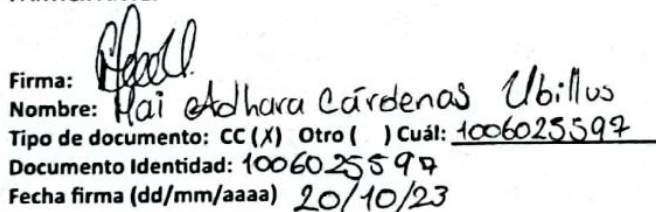 Firma:
Nombre: Mai Adhara Cárdenas Ubillus
Tipo de documento: CC (X) Otro ( ) Cuál: 1006025597
Documento Identidad: 1006025597
Fecha firma (dd/mm/aaaa) 20/10/23